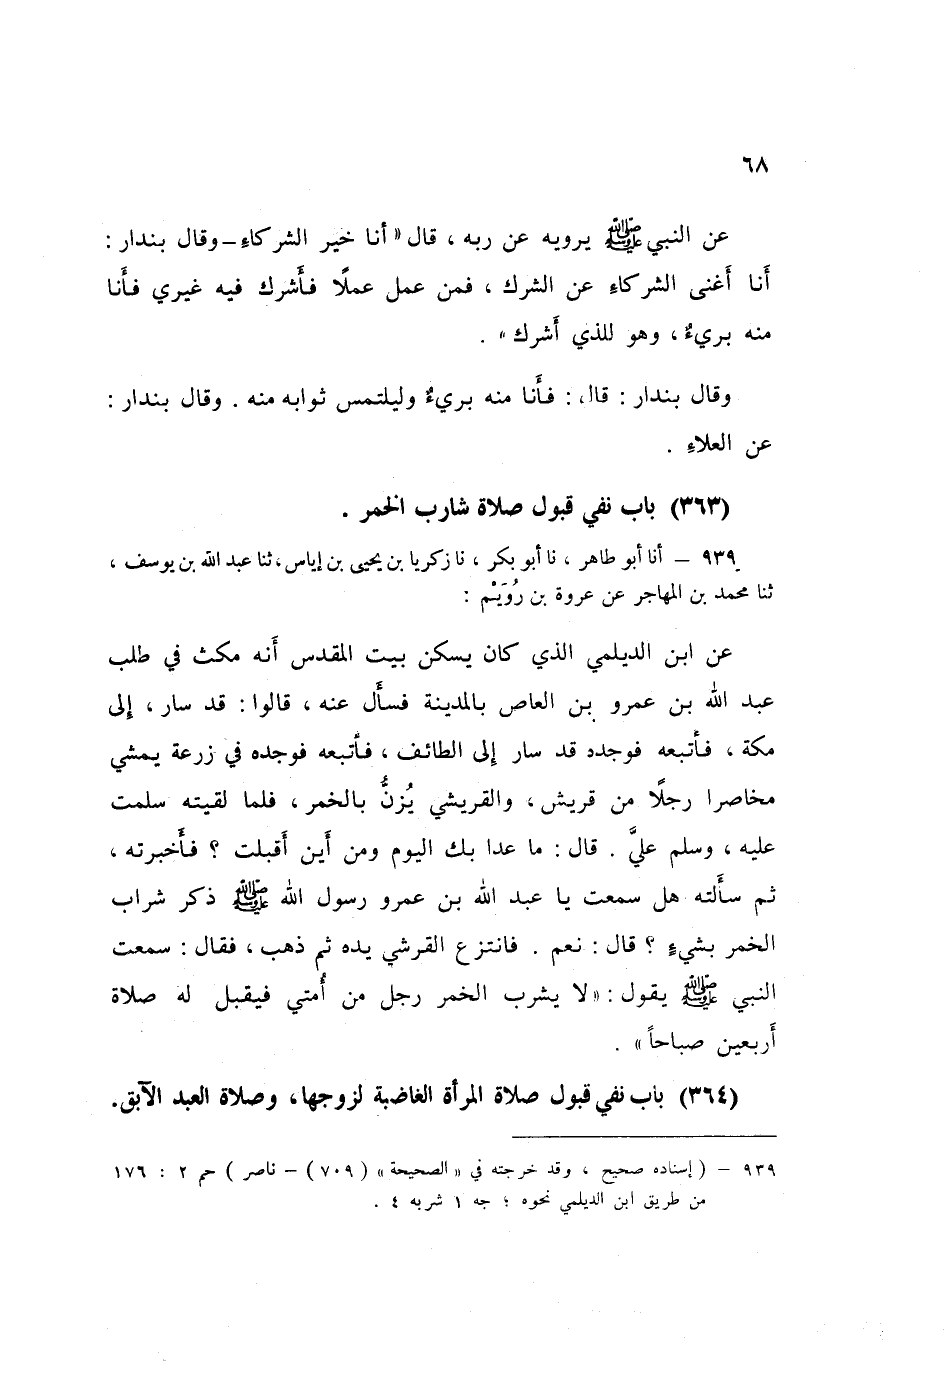 ٦٨
عن النبي ﷺ يرويه عن ربه ، قال « أنا خير الشركاء ــ وقال بندار :
أنا أغنى الشركاء عن الشرك ، فمن عمل عملًا فأشرك فيه غيري فأنا
منه بريءٌ ، وهو للذي أشرك » .
وقال بندار : قال : فأنا منه بريءٌ وليلتمس ثوابه منه . وقال بندار :
عن العلاء .
(٣٦٣) باب نفي قبول صلاة شارب الخمر .
٩٣٩ – أنا أبو طاهر ، نا أبو بكر ، نا زكريا بن يحيى بن إياس ، ثنا عبد الله بن يوسف ،
ثنا محمد بن المهاجر عن عروة بن رُوَيْم :
عن ابن الديلمي الذي كان يسكن بيت المقدس أنه مكث في طلب
عبد الله بن عمرو بن العاص بالمدينة فسأل عنه ، قالوا : قد سار ، إلى
مكة ، فأتبعه فوجده قد سار إلى الطائف ، فأتبعه فوجده في زرعة يمشي
مخاصرا رجلًا من قريش ، والقريشي يُزنُّ بالخمر ، فلما لقيته سلمت
عليه ، وسلم عليَّ . قال : ما عدا بك اليوم ومن أين أقبلت ؟ فأخبرته ،
ثم سألته هل سمعت يا عبد الله بن عمرو رسول الله ﷺ ذكر شراب
الخمر بشيء ؟ قال : نعم . فانتزع القرشي يده ثم ذهب ، فقال : سمعت
النبي ﷺ يقول : « لا يشرب الخمر رجل من أُمتي فيقبل له صلاة
أربعين صباحاً » .
(٣٦٤) باب نفي قبول صلاة المرأة الغاضبة لزوجها، وصلاة العبد الآبق.
٩٣٩ – ( إسناده صحيح ، وقد خرجته في « الصحيحة » ( ٧٠٩ ) – ناصر ) حم ٢ : ١٧٦
من طريق ابن الديلمي نحوه ؛ جه ١ شربه ٤ .